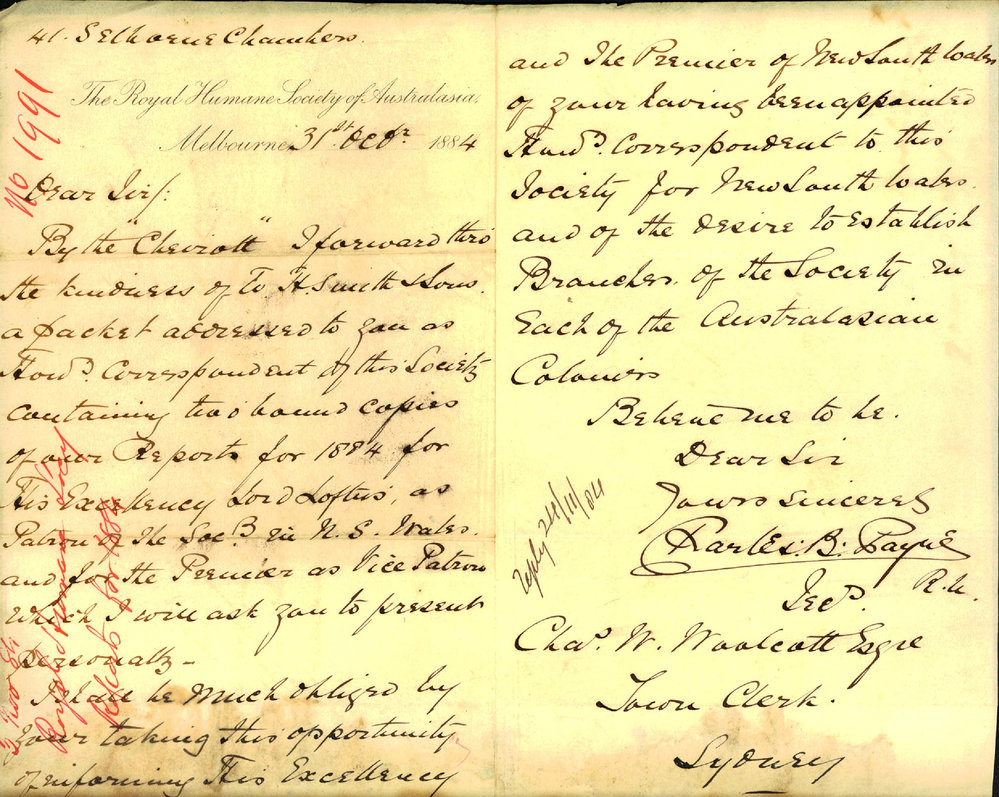 41. Selborne Chambers.
The Royal Humane Society of Australasia,
Melbourne, 31st Octr. 1884
Dear Sir/:
By the "Cheviott" I forward thro'
the kindness of W. H. Smith & Sons.
a packet addressed to you as
Hony. Correspondent of this Society
containing two bound copies
of our Reports for 1884 for
His Excellency Lord Loftus, as
Patron of the Socy. in N. S. Wales.
and for the Premier as Vice Patron
which I will ask you to present
personally –
I shall be much obliged by
your taking this opportunity
of informing His Excellency
and the Premier of New South Wales
of your having been appointed
Hony. Correspondent to this
Society for New South Wales.
and of the desire to Establish
Branches. of the Society in
Each of the Australasian
Colonies
Believe me to be.
Dear Sir
Yours sincerely
Charles: B: Payne
R.N.
Secy.
Chas. W. Woolcott Esqre
Town Clerk.
Sydney
Reply 24/11/84
No 1991
Royal Humane Socy
for 1884